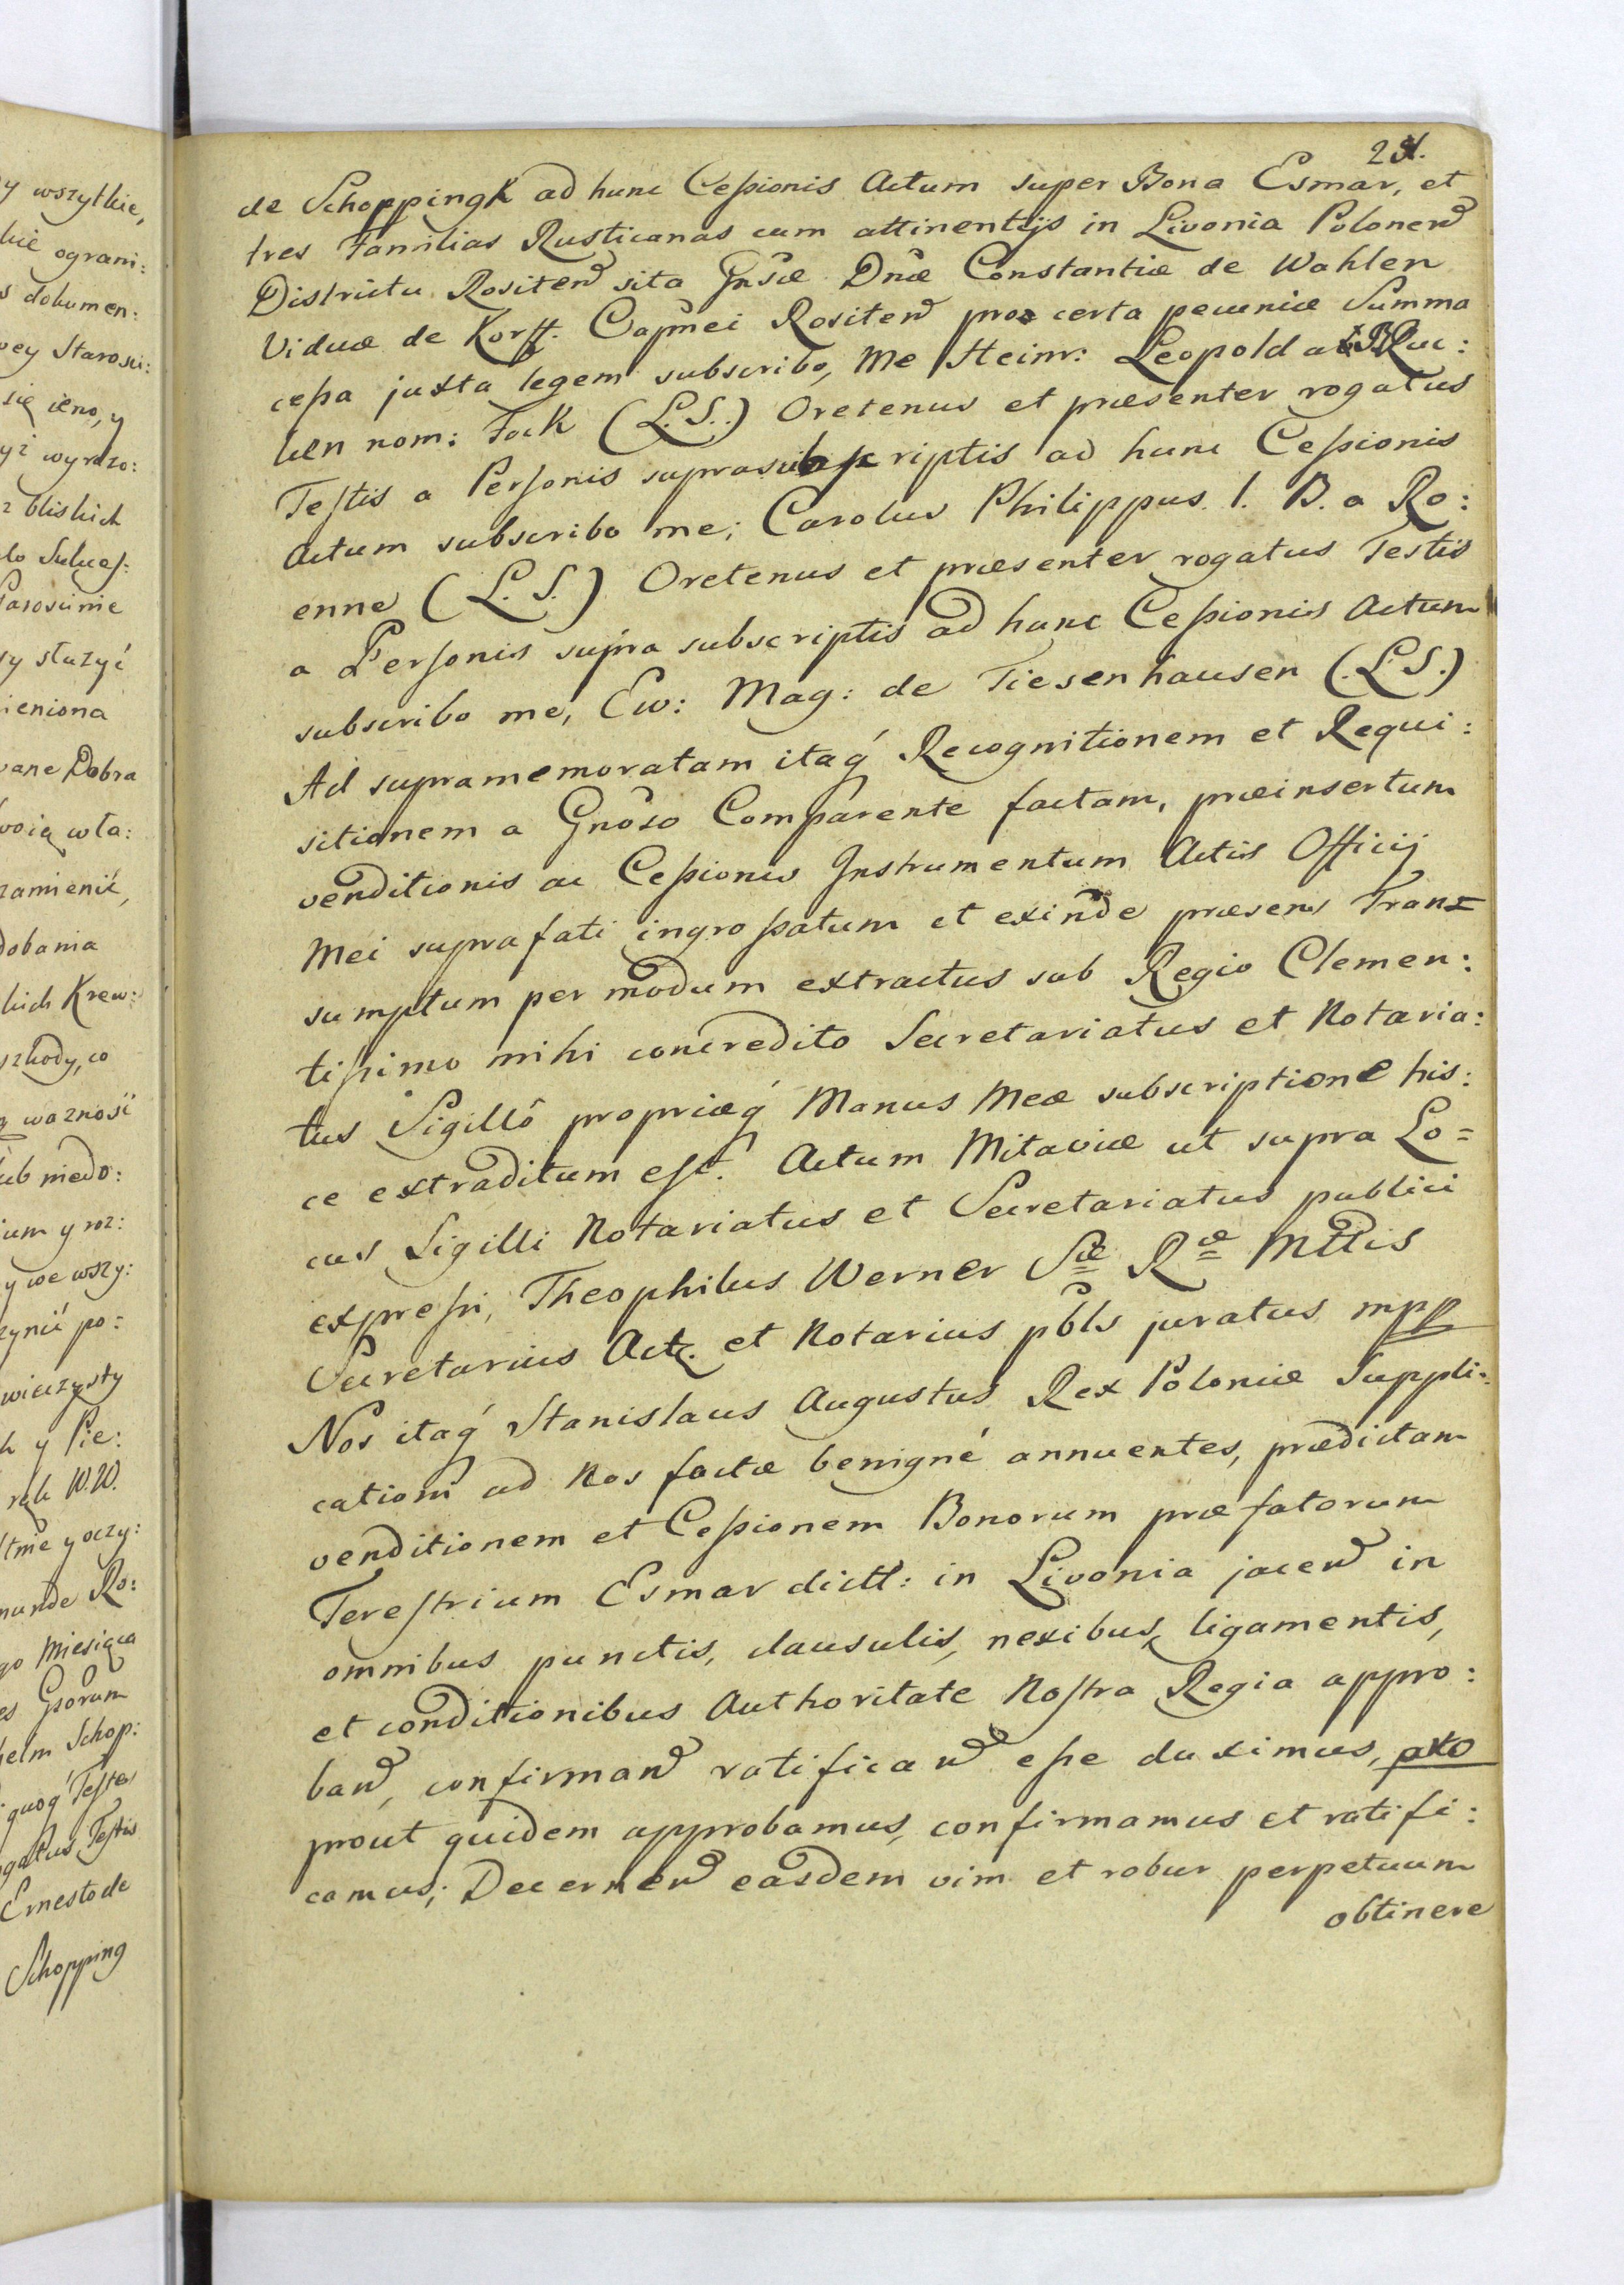 y wszytkie,
kie ograni:
s dokumen:
wey Starosci:
się ieno, y
yż wyrazo:
z bliskich
lo Sukces:
Parosinnie
sy służyć
ieniona
wane Dobra
woią wła:
zamienić,
dobania
kich Krew:
szkody, co
ą woznosić
ub niedo:
ium y roz:
y we wszy:
zynić po:
wieczysty
h y Pie:
ręk W.W.
stnie y oczy:
munde Ro:
go Miesiąca
es Gsorum
helm Schop:
quoq́ Testes
ogatus Testis
Ernesto de
Schopping
21.
de Schoppingk ad hunc Cessionis Actum super Bona Esmar, et
tres Familias Rusticanas cum attinentijs in Livonia Polonen̄
Districtu Rositen̄ sita Gnsæ Dnæ Constantiæ de Wahlen
Viduæ de Korff. Capnei Rositen̄ pro certa pecuniæ Summa
cessa juxta legem subscribo, Me Heinr: Leopold a Buc:
ken nom: Fock (L.S.) Oretenus et præsenter rogatus
Testis a Personis suprascriptis ad hunc Cessionis
Actum subscribo me; Carolus Philippus. l. B. a Ro:
enne (L. S.) Oretenus et præsenter rogatus Testis
a Personis supra subscriptis ad hunc Cessionis Actum
subscribo me, Ew: Mag: de Tiesenhausen (L.S.)
Ad supramemoratam itaq́ Recognitionem et Requi:
sitionem a Gnoso Comparente factam, præinsertum
venditionis ac Cessionis Instrumentum Actis Officij
Mei suprafati ingrossatum et exinde præsens Tran=
sumptum per modum extractus sub Regio Clemen:
tissimo mihi concredito Secretariatus et Notaria:
tus Sigillô propriæq́ Manus Meæ subscriptione his:
ce extraditum est. Actum Mitaviæ ut supra Lo=
cus Sigilli Notariatus et Secretariatus publici
expressi, Theophilus Werner Sæ Ræ Mttis
Secretarius Act. et Notarius pbls juratus mpp
Nos itaq́ Stanislaus Augustus Rex Poloniæ Suppli:
cationi ad Nos factæ benigné annuentes, prædictam
venditionem et Cessionem Bonorum præfatorum
Terestrium Esmar dictt: in Livonia jacen̄ in
omnibus punctis, clausulis, nexibus, ligamentis,
et conditionibus Authoritate Nostra Regia appro:
ban̄, confirman̄ ratifican̄ esse duximus,
prout quidem approbamus, confirmamus et ratifi:
camus; Decernen̄ easdem vim et robur perpetuum
obtinere